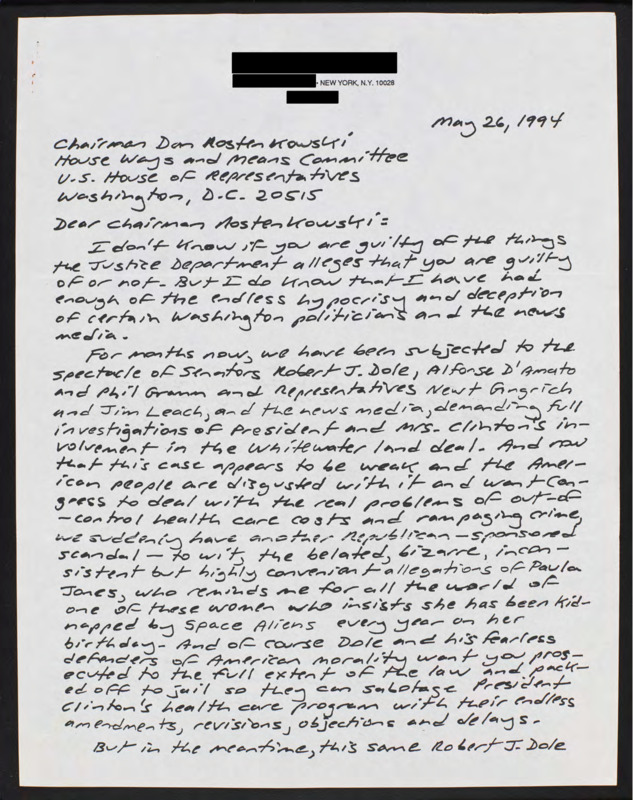 • NEW YORK, N.Y. 10028
May 26, 1994
Chairman Dan Rostenkowski
House Ways and Means Committee
U.S. House of Representatives
Washington, D.C. 20515
Dear Chairman Rostenkowski:
I don't know if you are guilty of the things
the Justice Department alleges that you are guilty
of or not. But I do know that I have had
enough of the endless hypocrisy and deception
of certain Washington politicians and the news
media.
For months now, we have been subjected to the
spectacle of Senators Robert J. Dole, Alfonse D'Amato
and Phil Gramm and Representatives Newt Gingrich
and Jim Leach, and the news media, demanding full
investigations of President and Mrs. Clinton's in-
volvement in the Whitewater land deal. And now
that this case appears to be weak and the Amer-
ican people are disgusted with it and want Con-
gress to deal with the real problems of out-of
-control health care costs and rampaging crime,
we suddenly have another Republican-sponsored
scandal — to wit, the belated, bizarre, incon-
sistent but highly convenient allegations of Paula
Jones, who reminds me for all the world of
one of these women who insists she has been kid-
napped by Space Aliens every year on her
birthday. And of course Dole and his fearless
defenders of American morality want you pros-
ecuted to the full extent of the law and pack-
ed off to jail so they can sabotage President
Clinton's health care program with their endless
amendments, revisions, objections and delays.
But in the meantime, this same Robert J. Dole